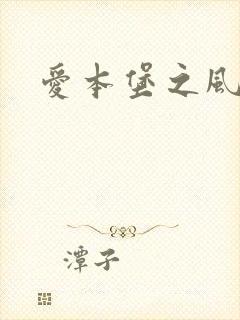 愛本堡之風
潭子